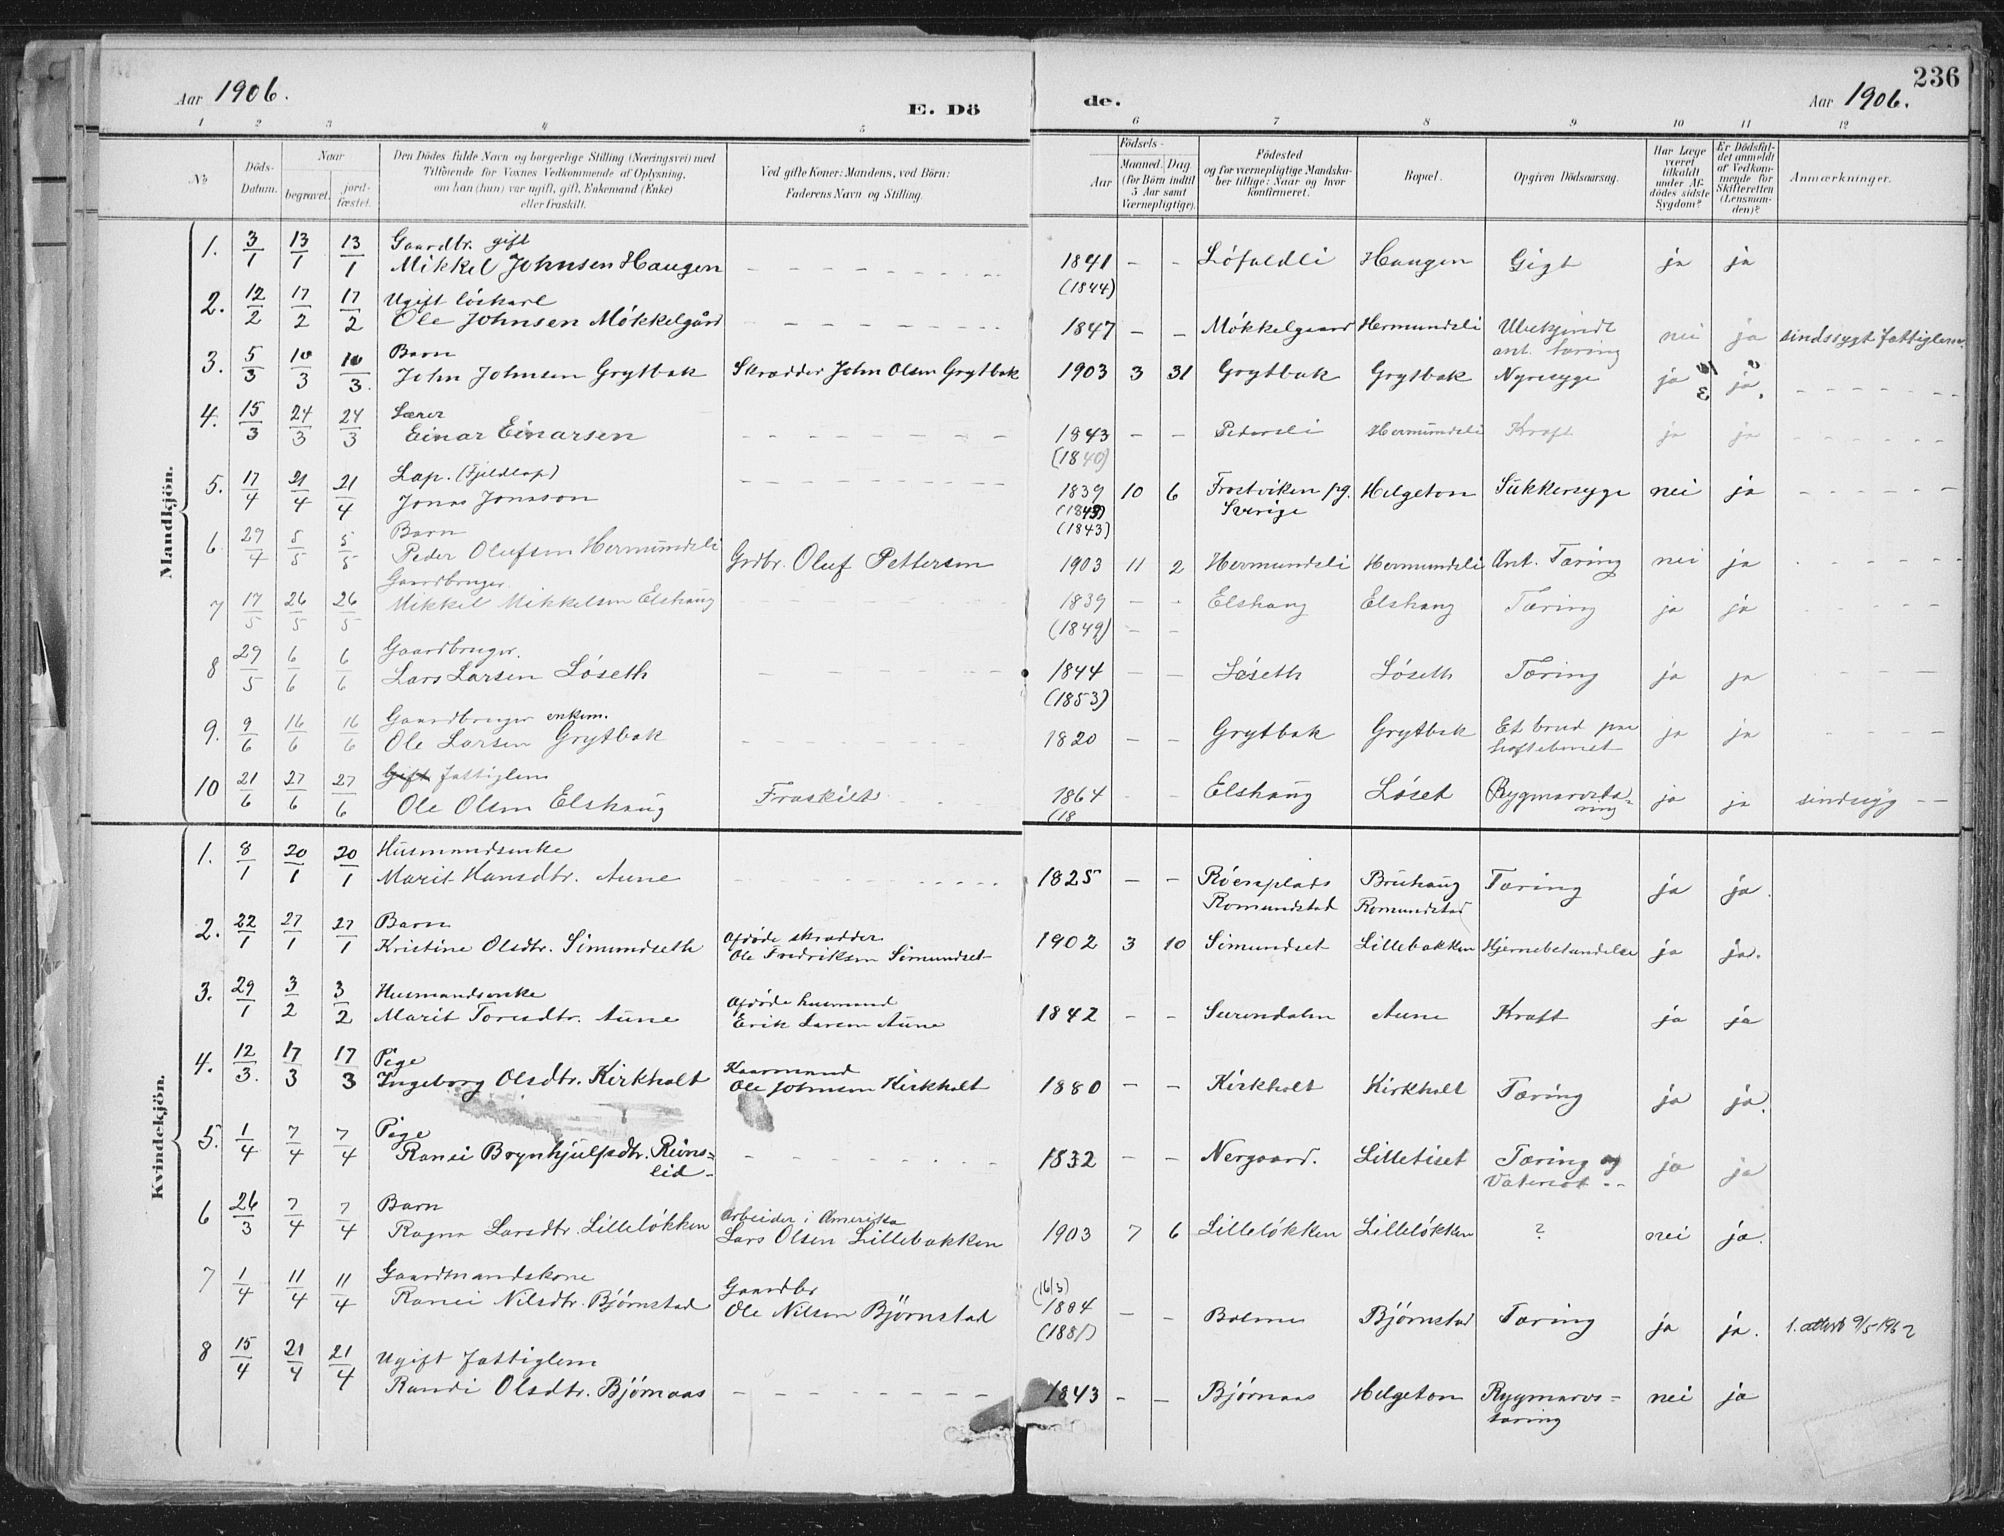 236
Aar 1906.
E. Dö
de.
Aar 1906.
1 2 3 4 5 6 7 8 9 10 11 12
No
Döds-Datum.
Naar
begravet.
jord-fæstet.
Den Dödes fulde Navn og borgerlige Stilling (Næringsvei) med
Tilföiende for Voxnes Vedkommende af Oplysning,
om han (hun) var ugift, gift, Enkemand (Enke)
eller fraskilt.
Ved gifte Koner: Mandens, ved Börn:
Faderens Navn og Stilling.
Födsels-
Aar
Maaned. Dag
(for Börn indtil
5 Aar samt
Værnepligtige).
Födested
og for værnepligtige Mandska-
ber tillige: Naar og hvor
konfirmeret.
Bopæl.
Opgiven Dödsaarsag.
Har Læge
været
tilkaldt
under Af-
dödes sidste
Sygdom?
Er Dödsfal-
det anmeldt
af Vedkom-
mende for
Skifteretten
(Lensman-
den)?
Anmærkninger.
Mandkjön.
1. 3/1 13/1 13/1 Gaardbr. gift
Mikkel Johnsen Haugen 1841 - - Løfaldli Haugen Gigt ja ja
(1844)
2. 12/2 17/2 17/2 Ugift løskarl
Ole Johnsen Møkkelgård 1847 - - Møkkelgaard Hermundsli Ubekjendt nei ja sindssygt fattiglem.
ant. tæring
3. 5/3 10/3 10/3. Barn
John Johnsen Grytbak Skrædder John Olsen Grytbak 1903 3 31 Grytbak Grytbak Nyresyge ja ja.
4. 15/3 24/3 24/3 Lærer
Einar Einarsen 1843 - - Pedersli Hermundsli Kræft ja ja
(1840)
5. 17/4 21/4 21/4 Lap. (Fjeldlap)
Jonas Jonsson 1839 10 6 Frostviken pg. Helgeton Sukkersyge nei ja
(1843) Sverige
(1843)
6. 29/4 5/5 5/5 Barn
Peder Olufsen Hermundsli Grdbr. Oluf Pettersen 1903 11 2 Hermundsli Hermundsli Ant. Tæring nei ja
7 17/5 26/5 26/5 Gaardbruger.
Mikkel Mikkelsen Elshaug 1839 - - Elshaug Elshaug Tæring ja ja
(1849) - -
8 29/5 6/6 6/6 Gaardbruger.
Lars Larsen Løseth 1844 - - Løseth Løseth Tæring ja ja
(1853)
9. 9/6 16/6 16/6 Gaardbruger enkem.
Ole Larsen Grytbak 1820 - - Grytbak Grytbak Et brud paa ja ja
hoftebenet
10 21/6 27/6 27/6 Gift fattiglem
Ole Olsen Elshaug Fraskilt 1864 - - Elshaug Løset Rygmarvstæ- ja ja sindssyg
ring
(18
Kvindekjön.
1. 8/1 20/1 20/1 Husmandsenke
Marit Hansdtr. Aune 1825 - - Røenplads Bruhaug Tæring ja ja.
Romundstad Romundstad
2. 22/1 27/1 27/1 Barn
Kristine Olsdtr. Simundseth Afdøde skrædder
Ole Fredriksen Simundset 1902 3 10 Simundset Lillebakken Hjernebetændelse ja ja.
3. 29/1 3/2 3/2 Husmandsenke
Marit Toresdtr. Aune Afdøde husmand
Erik Larsen Aune 1842 - - Surendalen Aune Kræft ja ja
4. 12/3. 17/3 17/3 Pige
Ingeborg Olsdtr. Kirkholt Kaarmand
Ole Johnsen Kirkholt 1880 - - Kirkholt Kirkholt Tæring ja ja.
5. 1/4 7/4 7/4 Pige
Ranei Brynhjulfsdtr. Reins=
lid 1832 - - Nergaard. Lilletiset Tæring og ja ja
Vatersot
6 26/3 7/4 7/4 Barn
Ragna Larsdtr. Lilleløkken Arbeider i Amerika
Lars Olsen Lillebakken 1903 7 6 Lilleløkken Lilleløkken ? nei ja.
7 1/4 11/4 11/4 Gaardmandskone
Ranei Nilsdtr. Bjørnstad Gaardbr
Ole Nilsen Bjørnstad (16/3)
1884 - - Bolme Bjørnstad Tæring ja ja. 1. attest 9/5 1962
(1881)
8 15/4 21/4 21/4 Ugift fattiglem
Randi Olsdtr. Bjørnaas 1843 - - Bjørnaas Helgeton Rygmarvs= nei ja
tæring